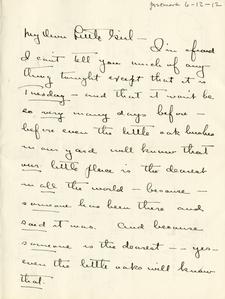 postmark 6-12-12
My dear Little Girl —
I'm afraid
I can't tell you much of any
thing tonight except that it is
Tuesday — and that it won't be
so very many days before —
before even the little oak bushes
in our yard will know that
our little place is the dearest
in all the world — because —
someone has been there and
said it was. And because
someone is the dearest — yes —
even the little oaks will know
that.